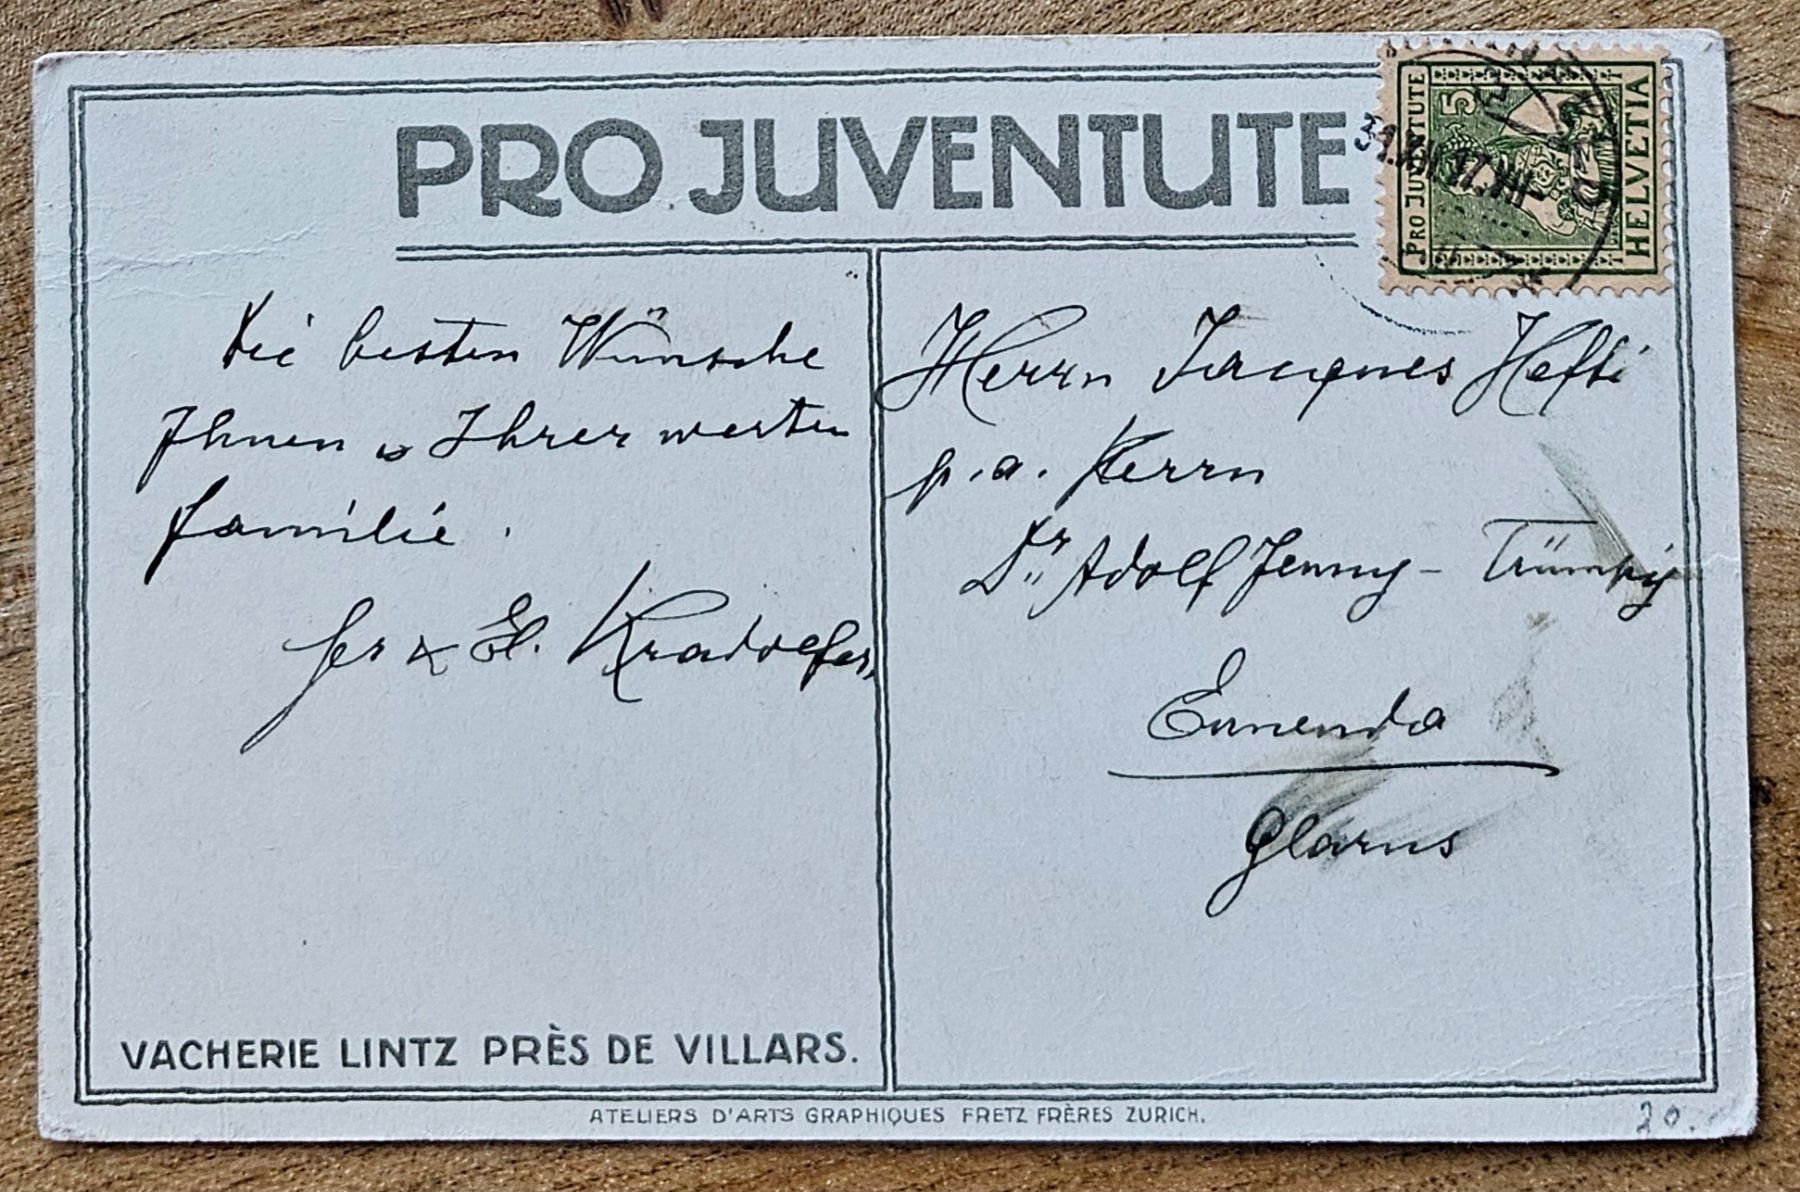 PRO JUVENTUTE
PRO JUVENTUTE
5
HELVETIA
31.XII.17.VIII
Die besten Wünsche
Ihnen u Ihrer werten
Familie.
& El. Kradolfer.
Herrn Jacques Hefti
p.a. Herrn
Dr. Adolf Jenny - Trümpy
Ennenda
Glarus
VACHERIE LINTZ PRÈS DE VILLARS.
ATELIERS D'ARTS GRAPHIQUES FRETZ FRÈRES ZURICH.
20.